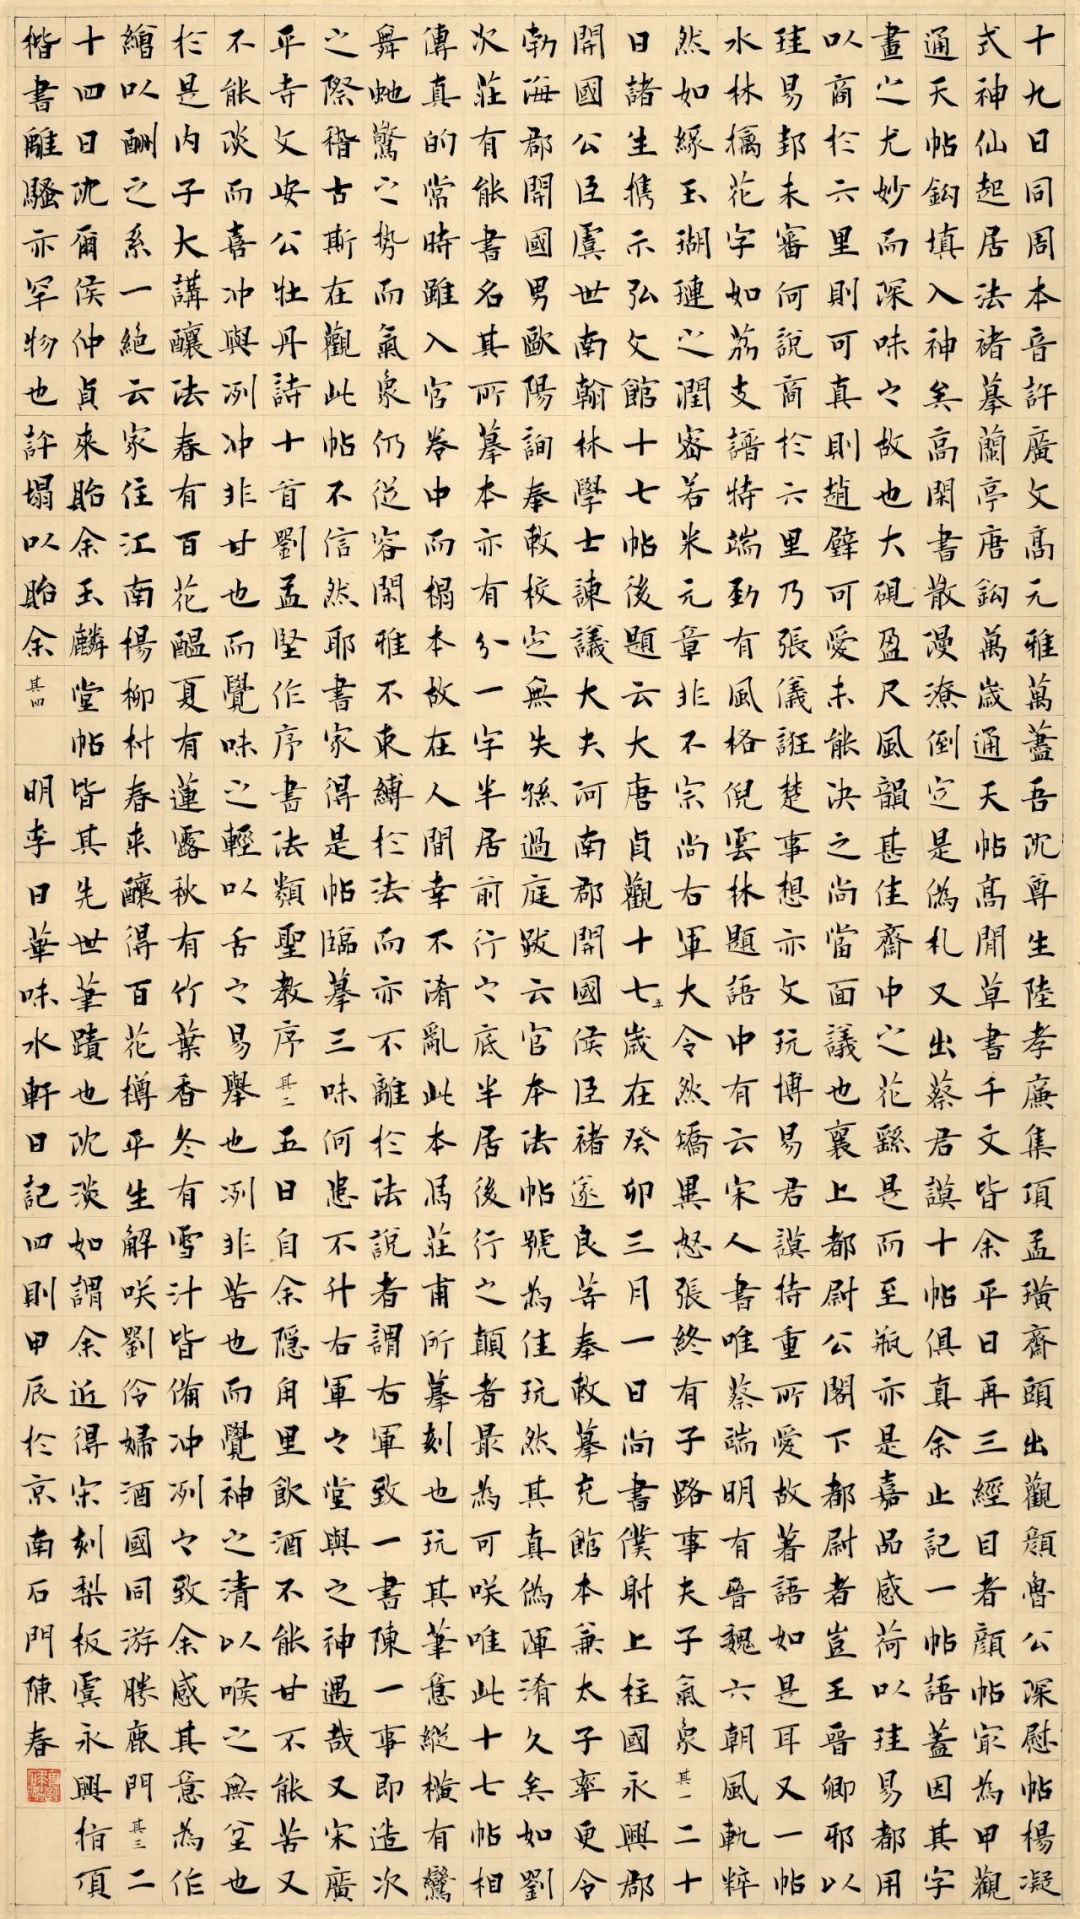 十九日同周本音許廣文高元雅萬蓋吾沈尊生陸孝廉集項孟璜齋頭出觀顏魯公深慰帖楊凝
式神仙起居法褚摹蘭亭唐鈎萬歲通天帖高閒草書千文皆余平日再三經目者顏帖㝡為甲觀
通天帖鈎填入神矣高閑書散漫潦倒定是偽札又出蔡君謨十帖俱真余止記一帖語蓋因其字
畫之尤妙而深味之故也大硯盈尺風韻甚佳齋中之花繇是而至瓶亦是嘉品感荷以珪易都用
以商於六里則可真則趙璧可愛未能決之尚當面議也襄上都尉公閣下都尉者豈王晉卿耶以
珪易邽未審何說商於六里乃張儀誑楚事想亦文玩博易君謨待重所愛故著語如是耳又一帖
水林檎花字如荔支譜特端勁有風格倪雲林題語中有云宋人書唯蔡端明有晉魏六朝風軌粹
然如緑玉瑚璉之潤密若米元章非不宗尚右軍大令然矯異怒張終有子路事夫子氣象其一二十
日諸生攜示弘文館十七帖後題云大唐貞觀十七年歲在癸卯三月一日尚書僕射上柱國永興郡
開國公臣虞世南翰林學士諫議大夫河南郡開國侯臣褚遂良等奉敕摹充館本兼太子率更令
勃海郡開國男歐陽詢奉敕校定無失孫過庭跋云官本法帖號為佳玩然其真偽渾淆久矣如劉
次莊有能書名其所摹本亦有分一字半居前行之底半居後行之顛者最為可咲唯此十七帖相
傳真的當時雖入官卷中而榻本故在人間幸不淆亂此本馮莊甫所摹刻也玩其筆意縱橫有鸞
舞虵驚之勢而氣象仍從容閑雅不束縛於法而亦不離於法說者謂右軍致一書陳一事即造次
之際稽古斯在觀此帖不信然耶書家得是帖臨摹三昧何患不升右軍之堂與之神遇哉又宋廣
平寺文安公牡丹詩十首劉孟堅作序書法類聖教序其二五日自余隱甪里飲酒不能甘不能苦又
不能淡而喜冲與冽冲非甘也而覺味之輕以舌之易舉也冽非苦也而覺神之清以喉之無窒也
於是内子大講釀法春有百花醞夏有蓮露秋有竹葉香冬有雪汁皆備冲冽之致余感其意為作
繪以酬之系一絕云家住江南楊柳村春來釀得百花樽平生解咲劉伶婦酒國同游勝鹿門其三二
十四日沈爾侯仲貞來貽余玉麟堂帖皆其先世筆蹟也沈淡如謂余近得宋刻梨板虞永興指頂
楷書離騷亦罕物也許塌以貽余其四 明李日華味水軒日記四則甲辰於京南石門陳春